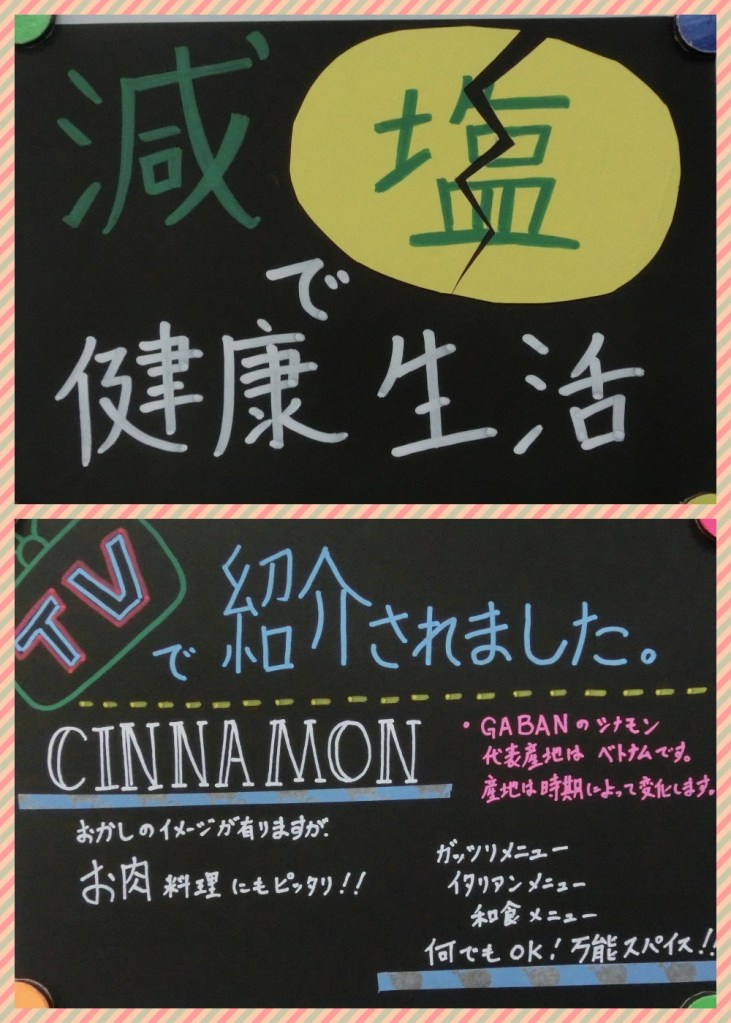 減塩
で
健康生活
TV
で紹介されました。
CINNAMON
・GABANのシナモン
代表産地は ベトナムです。
産地は時期によって変化します。
おかしのイメージが有りますが、
お肉料理にもピッタリ!!
ガッツリメニュー
イタリアンメニュー
和食メニュー
何でもOK!万能スパイス!!